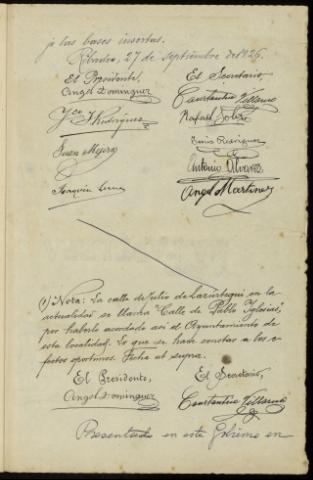 jo las bases insertas.
Ribadeo, 27 de septiembre de 1926.
El Presidente, El Secretario,
Angel Dominguez Constantino Villarme
Fco. J. Rodriguez Rafael
Luis Rodriguez
Juan Antonio Alvarez
Joaquin Luna Angel Martinez
(1) Nota: La calle de Julio de Lazúrtegui en la
actualidad se llama "Calle de Pablo Iglesias",
por haberlo acordado así el Ayuntamiento de
esta localidad. Lo que se hace constar a los e-
fectos oportunos. Fecha ut supra.
El Presidente, El Secretario,
Angel Dominguez Constantino Villarme
Presentado en este Gobierno en